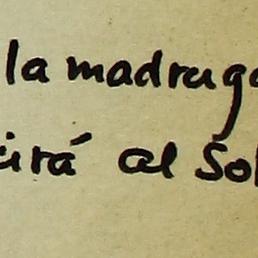 la madruga
cirá al Sol